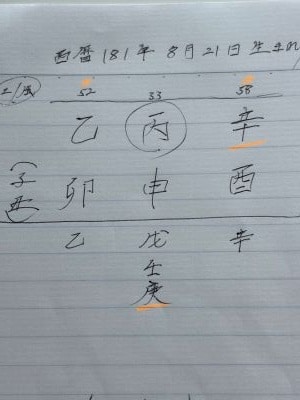 西暦181年8月21日生まれ
21歳
52 33 58
乙 丙 辛
卯 申 酉
乙 戊 辛
壬
庚